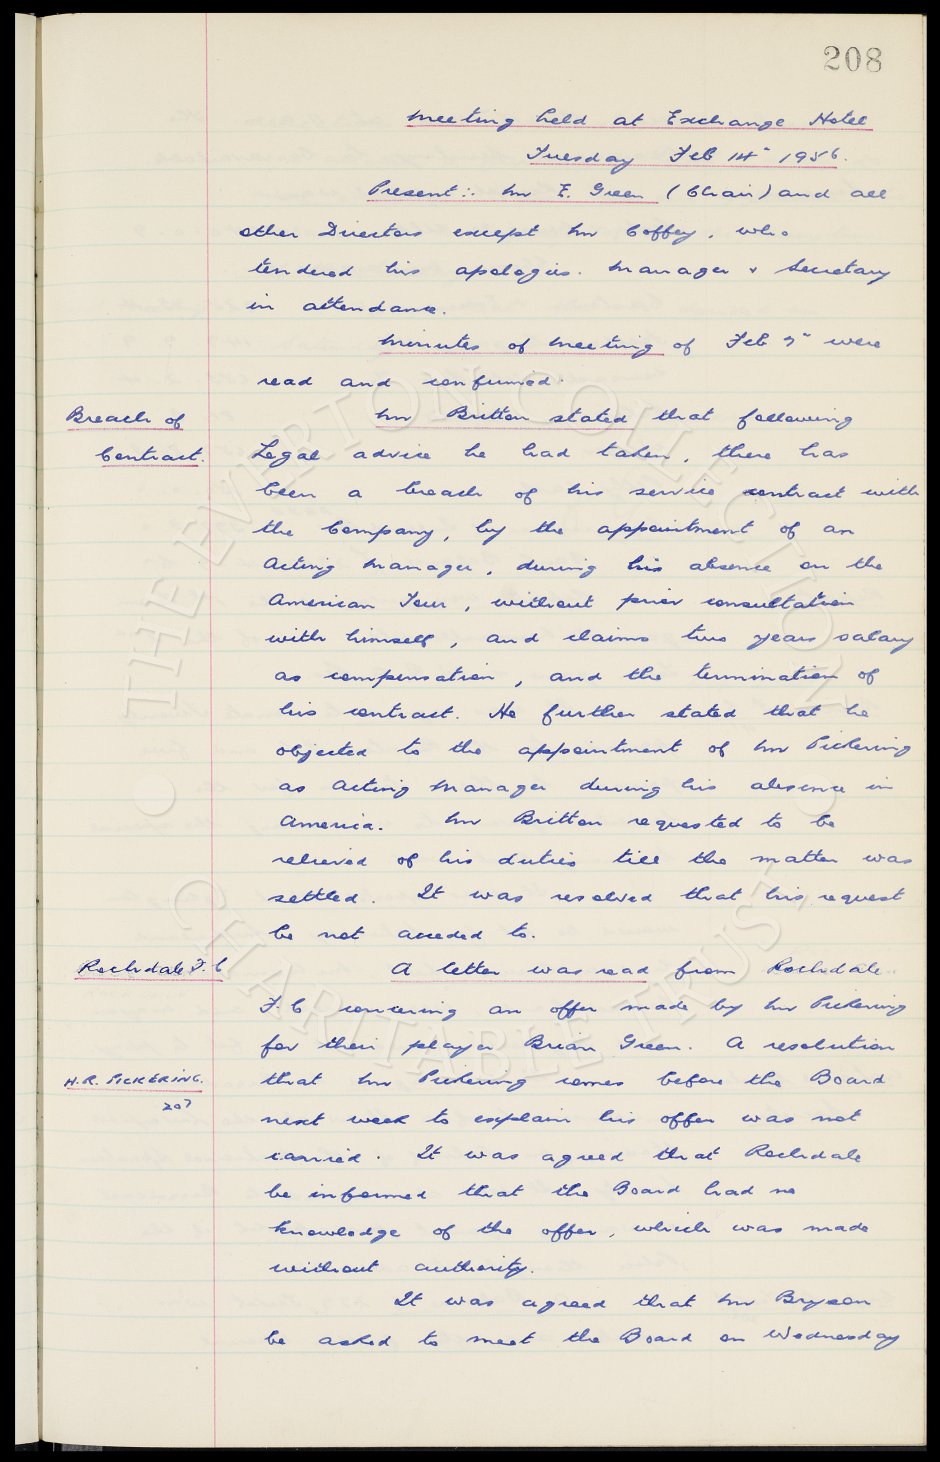 208
Meeting held at Exchange Hotel
Tuesday Feb 14" 1956.
Present:. Mr E. Green (Chair) and all
other Directors except Mr Coffey, who
tendered his apologies. Manager & Secretary
in attendance.
Minutes of Meeting of Feb 7" were
read and confirmed.
Breach of
Contract.
Mr Britton stated that following
Legal advice he had taken, there has
been a breach of his service contract with
the Company, by the appointment of an
Acting Manager, during his absence on the
American Tour, without prior consultation
with himself, and claims two years salary
as compensation, and the termination of
his contract. He further stated that he
objected to the appointment of Mr Pickering
as Acting Manager during his absence in
America. Mr Britton requested to be
relieved of his duties till the matter was
settled. It was resolved that his request
be not acceded to.
Rochdale F.C
A letter was read from Rochdale
F.C concerning an offer made by Mr Pickering
for their player Brian Green. A resolution
H.R. PICKERING.
207
that Mr Pickering comes before the Board
next week to explain his offer was not
carried. It was agreed that Rochdale
be informed that the Board had no
knowledge of the offer, which was made
without authority.
It was agreed that Mr Bryson
be asked to meet the Board on Wednesday
THE EVERTON COLLECTION
CHARITABLE TRUST